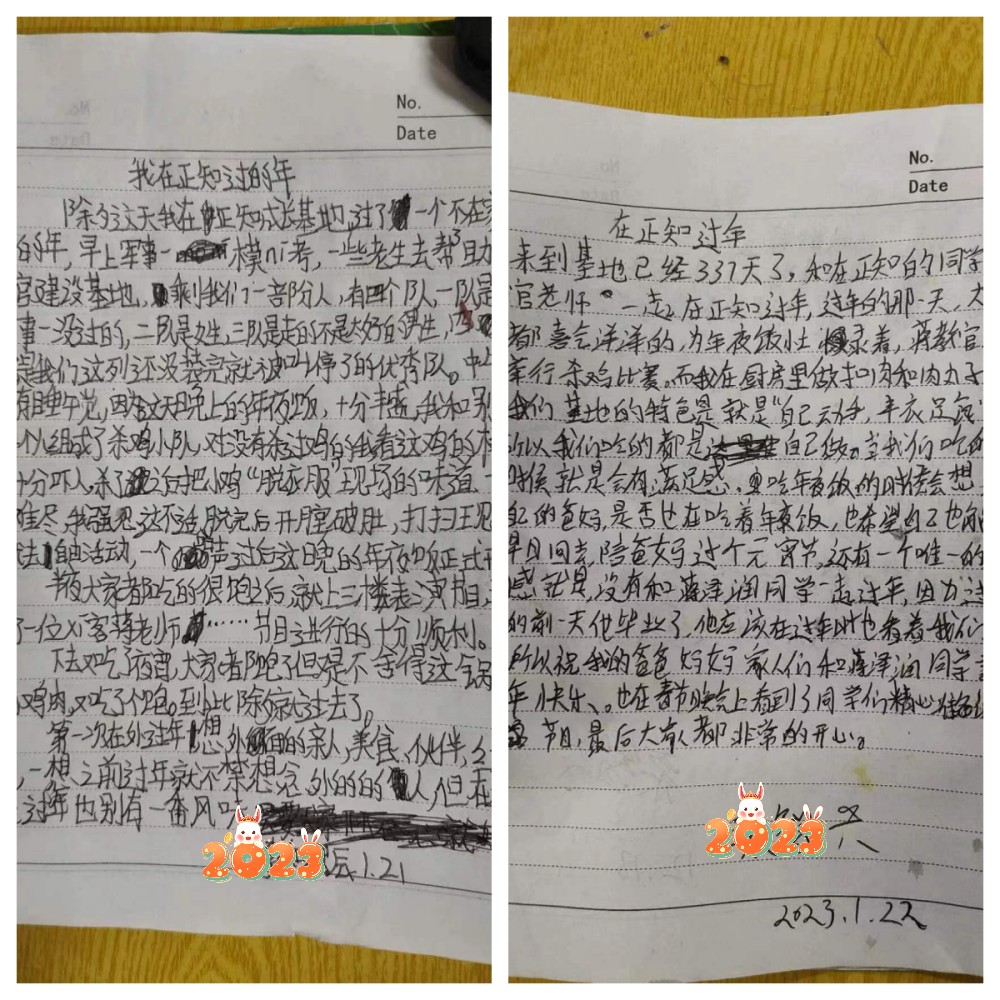 No.
Date
我在正知过的年
除夕这天我在正知成长基地,过了一个不在家
的年,早上军事一模ni考,一些老生去帮助
官建设基地,剩我们一部分人,有四个队,一队是
事一没过的,二队是女生,三队是走的不是太好的男生,
是我们这列还没装完就被叫停了的优秀队。中
有睡午觉,因为这天晚上的年夜饭,十分丰盛,我和别
个人组成了杀鸡小队,对没有杀过鸡的我看这鸡的
十分吓人,杀了之后把小鸡“脱衣服”现场的味道一
难尽,我强忍这不适,脱完后开膛破肚,打扫现
法自由活动,一个声过后这晚的年夜饭正式开
节夜大家都吃的很饱之后,就上三楼表演节目,
了一位xi客蒋老师……节目进行的十分顺利。
下去又吃了夜宵,大家都饱了但是不舍得这锅
鸡肉,又吃了个饱。到此除夕就过去了。
第一次在外过年,想外面的亲人,美食,伙伴,
,一想,之前过年就不禁想念外的的人,但在
过年也别有一番风
2023
1.21
No.
Date
在正知过年
来到基地已经337天了,和在正知的同学
官老师一起在正知过年,过年的那一天,大
都喜会洋洋的,为年夜饭忙录着,蒋教官
举行杀鸡比赛。而我在厨房里做扣肉和肉丸子
我们基地的特色是就是“自己动手,丰衣足食
所以我们吃的都是自己做。当我们吃的
时候就是会有满足感,要吃年夜饭的时候会想
自己的爸妈,是否也在吃着年夜饭,也希望自己也能
早日回去,陪爸妈过个元宵节,还有一个唯一的
感就是,没有和蒋泽润同学一起过年,因为过
的前一天他毕业了,他应该在过年时也看着我们
所以祝我的爸爸妈妈家人们和蒋泽润同学
年快乐、。也在春节晚会上看到了同学们精心准备
节目,最后大家都非常的开心。
2023
2023.1.22